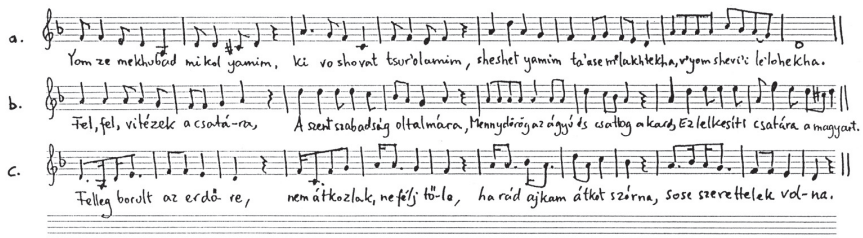 a. Yom ze mekhubad mikol yamim, ki vo shovat tsur'olamim, sheshet yamim ta'ase m'lakhtekha, v'yom shevi'i le'lohekha.
b. Fel, fel, vitézek a csatá-ra, A szent szabadság oltalmára, Mennydörög az ágyú és csattog a kard, Ez lelkesíti csatára a magyart.
c. Felleg borult az erdő-re, nem átkozlak, ne félj tő-le, ha rád ajkam átkot szórna, sose szerettelek vol-na.